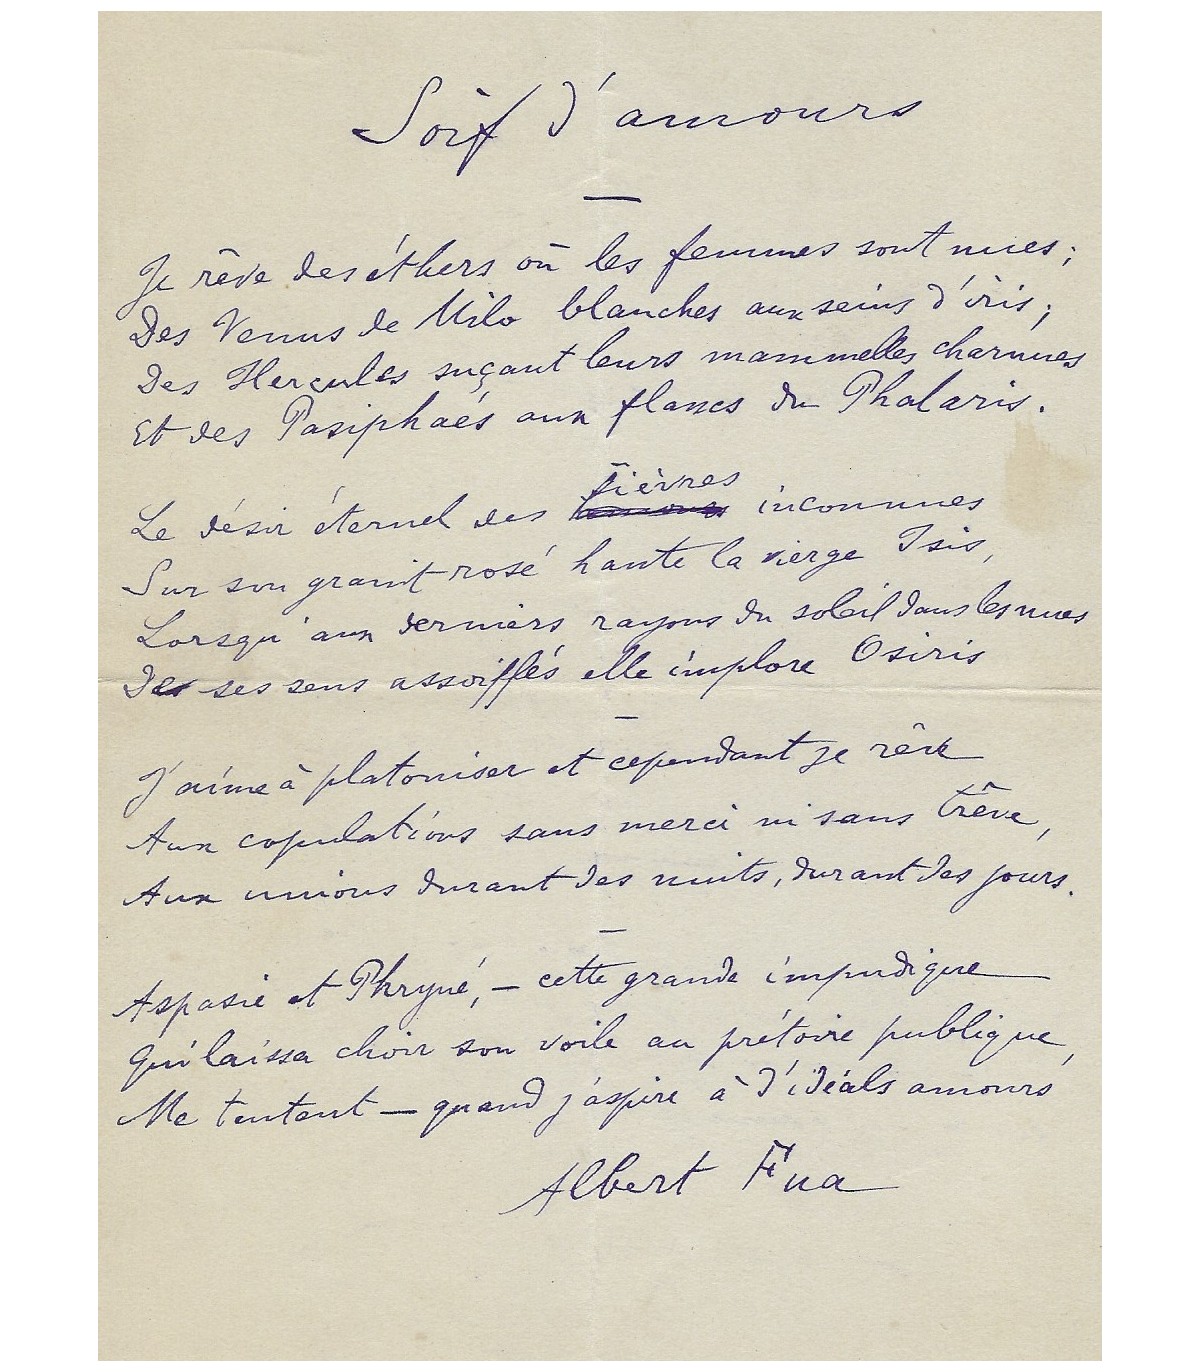 Soif d'amours
—
Je rêve des éthers où les femmes sont nues ;
Des Venus de Milo blanches aux seins d'iris ;
Des Hercules suçant leurs mammelles charnues
Et des Pasiphaés aux flancs du Phalaris.
fièvres
Le désir éternel des amours inconnues
Sur son granit rosé hante la vierge Isis,
Lorsqu'aux derniers rayons du soleil dans les nues
De ses sens assoiffés elle implore Osiris
—
J'aime à platoniser et cependant je rêve
Aux copulations sans merci ni sans trêve,
Aux unions durant des nuits, durant des jours.
—
Aspasie et Phryné, — cette grande impudique
Qui laissa choir son voile au prétoire publique,
Me tentent — quand j'aspire à d'idéals amours
Albert Fua